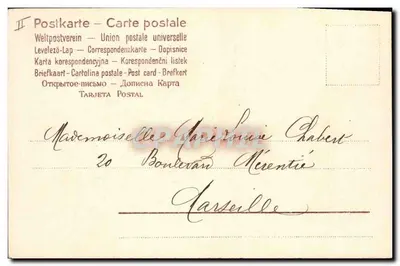 II
Postkarte – Carte postale
Weltpostverein – Union postale universelle
Levelező-Lap – Correspondenskarte – Dopisnice
Karta korespondencyjna – Korespondenční lístek
Briefkaart – Cartolina postale – Post card – Brefkort
Открытое письмо – Дописна Карта
Tarjeta Postal
Mademoiselle Marie Louise Chabert
20 Boulevard Mérentié
Marseille